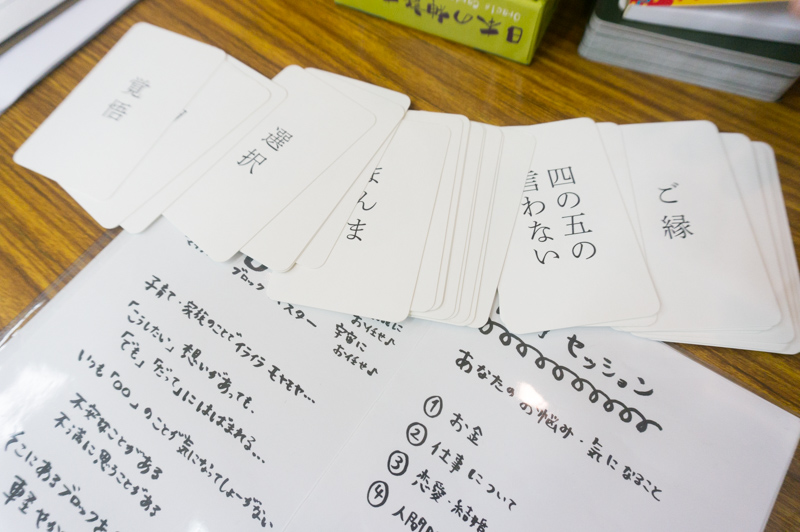 日本の
Oracle Card
覚悟
選択
ほんま
四の五の
言わない
ご縁
ブロック
スター
子育て・家族のことでイライラ モヤモヤ…
「こうしたい」想いがあっても、
「でも」「だって」にはばまれる…
いつも「〇〇」のことが気になってしょーがない
不安なことがある
不満に思うことがある
そこにあるブロックを
軽やか
に
お任せ♪
宇宙に
お任せ♪
セッション
あなたの お悩み・気になること
① お金
② 仕事について
③ 恋愛・結婚
④ 人間